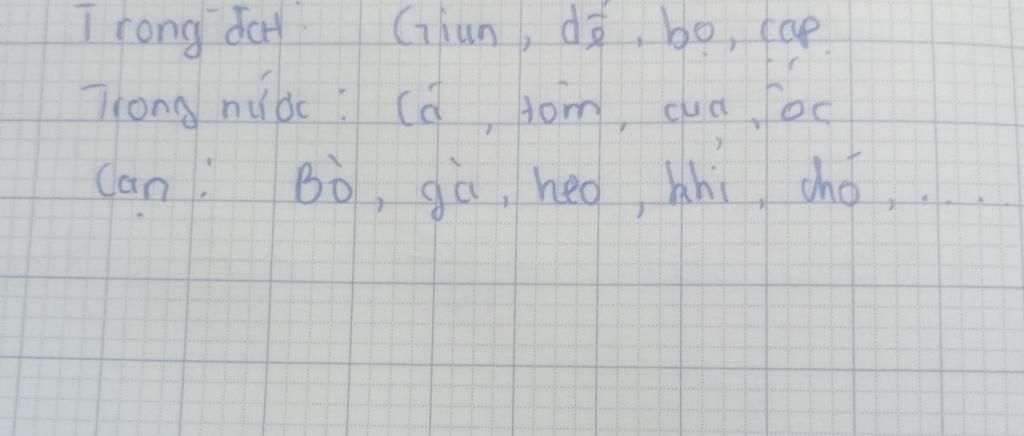 Trong đất: Giun, dế, bọ cạp
Trong nước: Cá, tôm, cua, ốc
Cạn: Bò, gà, heo, khỉ, chó, .....